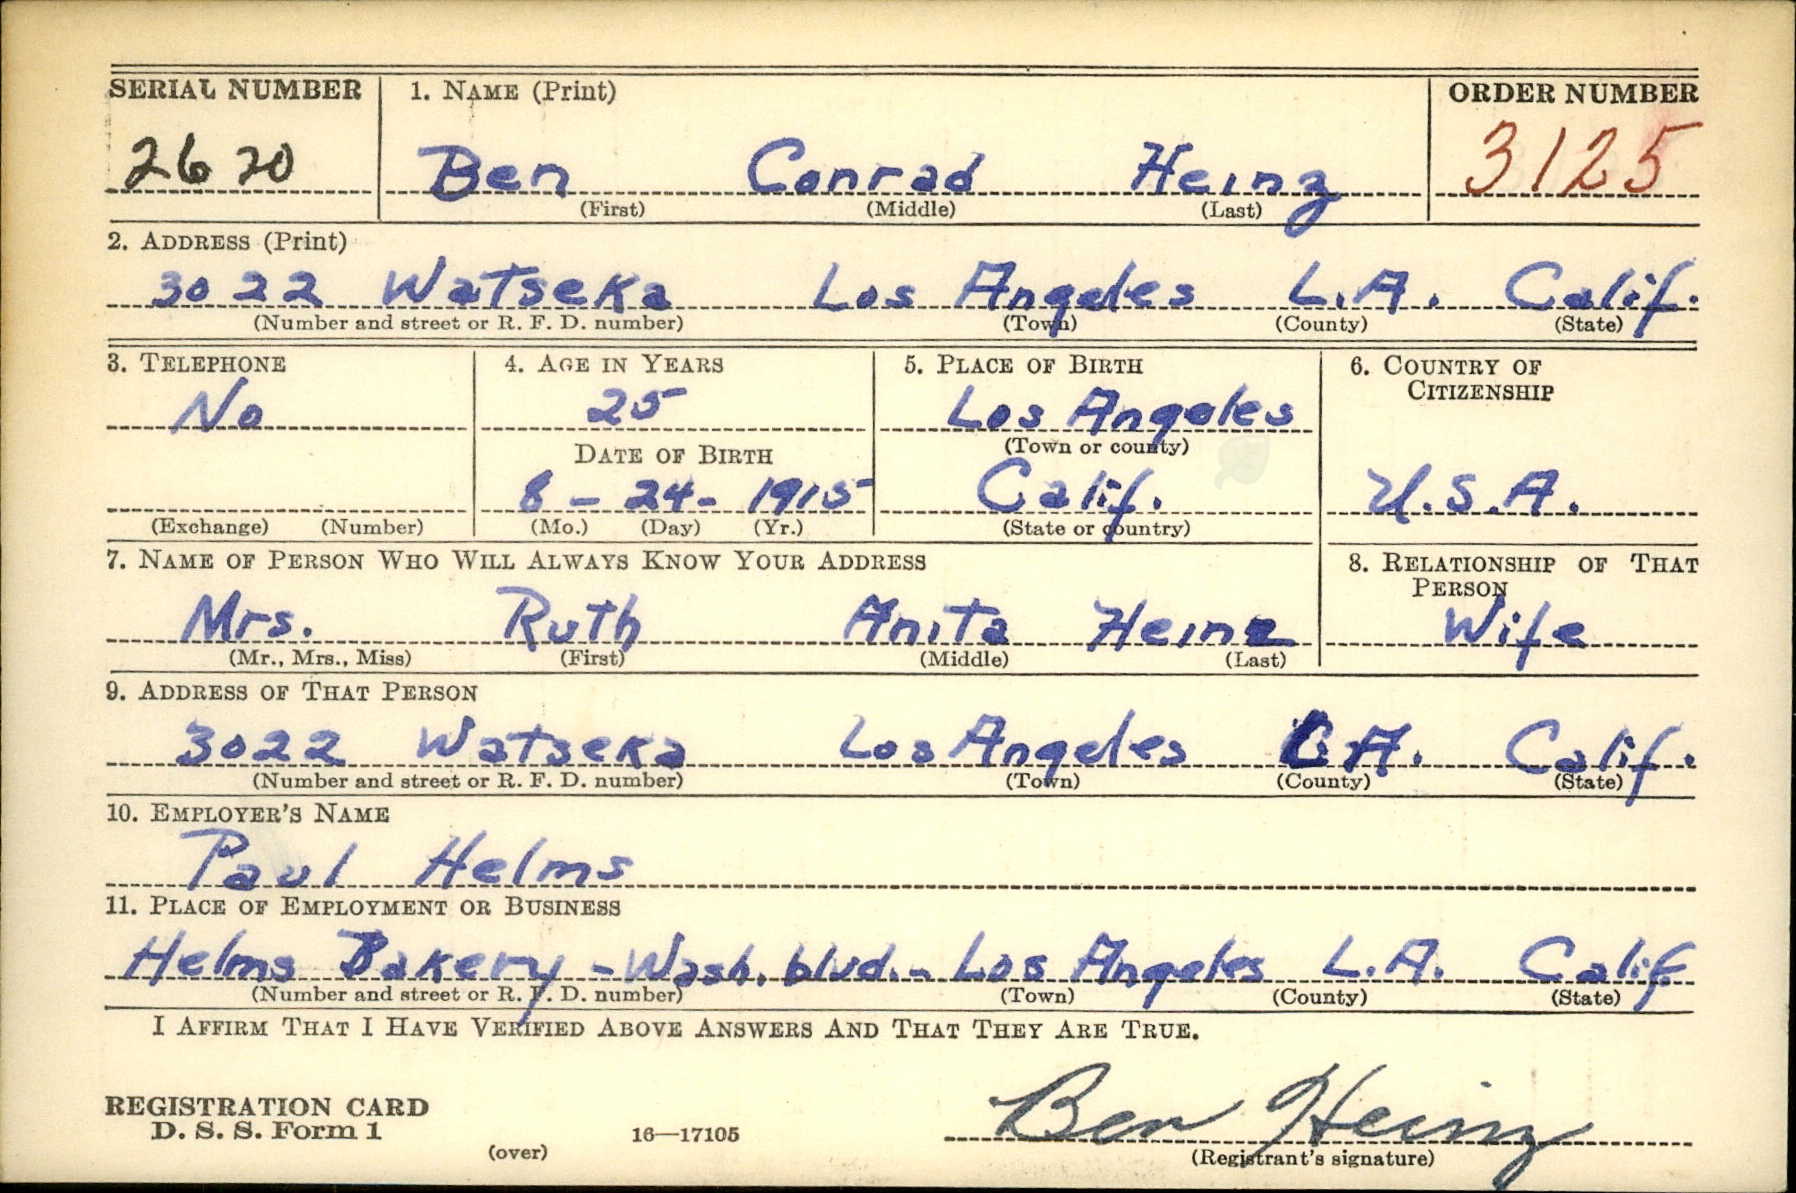 SERIAL NUMBER 1. NAME (Print) ORDER NUMBER
2620 Ben Conrad Heinz 3125
(First) (Middle) (Last)
2. ADDRESS (Print)
3022 Watseka Los Angeles L.A. Calif.
(Number and street or R. F. D. number) (Town) (County) (State)
3. TELEPHONE 4. AGE IN YEARS 5. PLACE OF BIRTH 6. COUNTRY OF CITIZENSHIP
No 25 Los Angeles
(Town or county)
DATE OF BIRTH
8 - 24 - 1915 Calif. U.S.A.
(Exchange) (Number) (Mo.) (Day) (Yr.) (State or country)
7. NAME OF PERSON WHO WILL ALWAYS KNOW YOUR ADDRESS 8. RELATIONSHIP OF THAT PERSON
Mrs. Ruth Anita Heinz Wife
(Mr., Mrs., Miss) (First) (Middle) (Last)
9. ADDRESS OF THAT PERSON
3022 Watseka Los Angeles L.A. Calif.
(Number and street or R. F. D. number) (Town) (County) (State)
10. EMPLOYER'S NAME
Paul Helms
11. PLACE OF EMPLOYMENT OR BUSINESS
Helms Bakery - Wash. blvd. - Los Angeles L.A. Calif.
(Number and street or R. F. D. number) (Town) (County) (State)
I AFFIRM THAT I HAVE VERIFIED ABOVE ANSWERS AND THAT THEY ARE TRUE.
REGISTRATION CARD
D. S. S. Form 1 Ben Heinz
(over) 16—17105 (Registrant's signature)